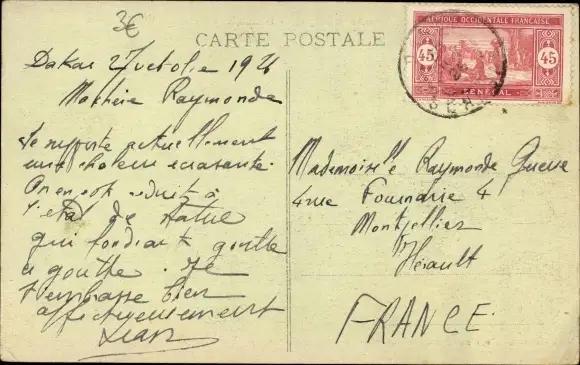 3€
CARTE POSTALE
AFRIQUE OCCIDENTALE FRANÇAISE
45 45
SÉNÉGAL
Dakar 27 octobre 192
Ma chérie Raymonde
Je supporte actuellement
une chaleur écrasante.
On en est réduit à
l'état de statue
qui fondrait goutte
à goutte. Je
t'embrasse bien
affectueusement
Jean
Mademoiselle Raymonde
4 rue Fournarie 4
Montpellier
Hérault
FRANCE